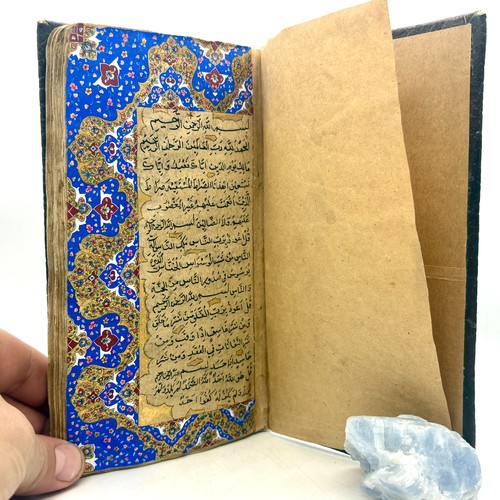 بسم الله الرحمن الرحيم
الحمد لله رب العالمين الرحمن الرحيم
مالك يوم الدين اياك نعبد و اياك
نستعين اهدنا الصراط المستقيم صراط
الذين انعمت عليهم غير المغضوب
عليهم ولا الضالين بسم الله الرحمن الرحيم
قل اعوذ برب الناس ملك الناس اله
الناس من شر الوسواس الخناس الذي
يوسوس في صدور الناس من الجنة
والناس بسم الله الرحمن الرحيم
قل اعوذ برب الفلق من شر ما خلق
ومن شر غاسق اذا وقب ومن
شر النفاثات في العقد ومن شر
حاسد اذا حسد
قل هو الله احد الله الصمد لم يلد ولم
ولم يكن له كفوا احد